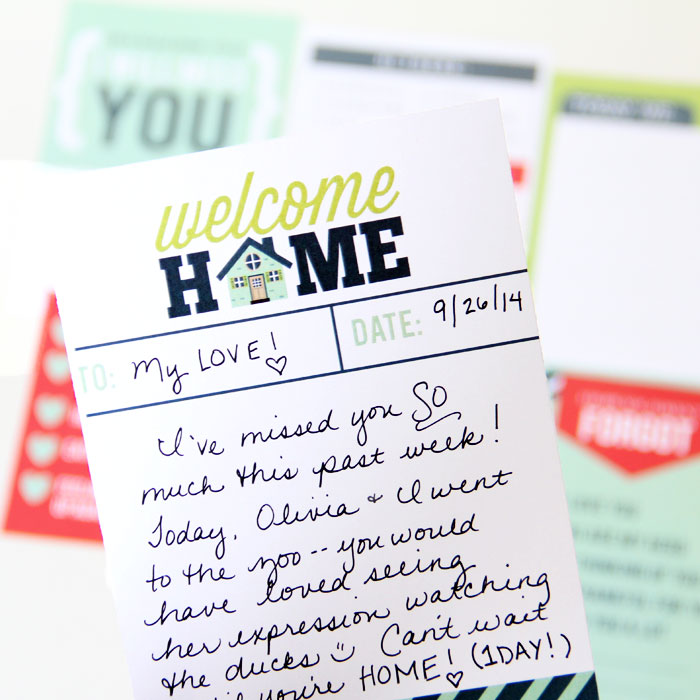 YOU
welcome
HOME
TO: My LOVE! ♡
DATE: 9/26/14
I've missed you SO
much this past week!
Today, Olivia & I went
to the zoo -- you would
have loved seeing
her expression watching
the ducks ☺ Can't wait
you're HOME! (1 DAY!)
FORGOT